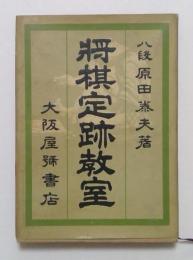 八段原田泰夫著
将棋定跡教室
大阪屋號書店